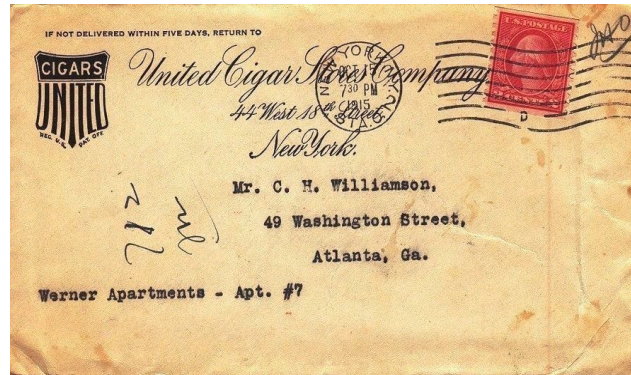 IF NOT DELIVERED WITHIN FIVE DAYS, RETURN TO
CIGARS
UNITED
REG. U.S. PAT. OFF.
United Cigar Stores Company
44 West 18th Street
New York.
NEW YORK, N.Y.
OCT 15
7 30 PM
1915
STA.
U.S. POSTAGE
2 CENTS 2
D
Mr. C. H. Williamson,
49 Washington Street,
Atlanta, Ga.
Werner Apartments - Apt. #7